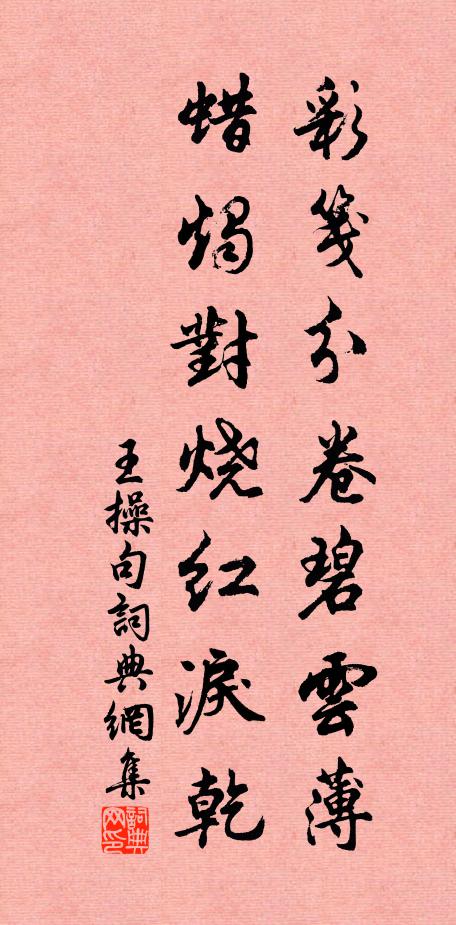 彩箋分卷碧雲薄
蜡燭對燒红淚乾
王操句詞典網集
詞典网印